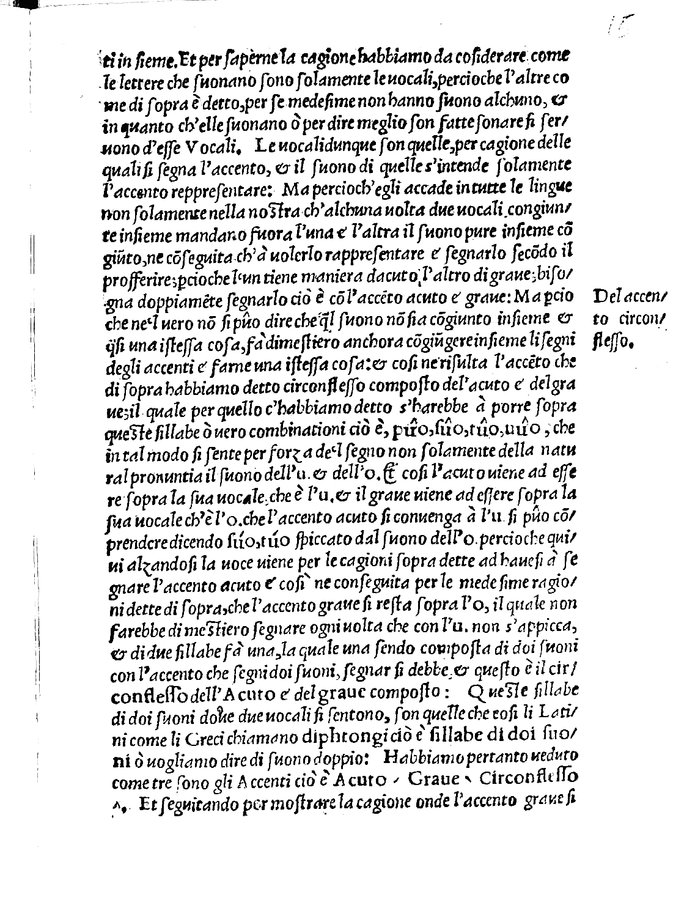 15
ti in sieme. Et per saperne la cagione habbiamo da cōsiderare come
le lettere che suonano sono solamente le uocali, percioche l'altre co
me di sopra è detto, per se medesime non hanno suono alchuno, &
in quanto ch'elle suonano ò per dire meglio son fatte sonare si ser/
uono d'esse Vocali. Le uocali dunque son quelle, per cagione delle
quali si segna l'accento, & il suono di quelle s'intende solamente
l'accento reppresentare: Ma percioch'egli accade in tutte le lingue
non solamente nella nostra ch'alchuna uolta due uocali congiun/
te insieme mandano fuora l'una e l'altra il suono pure insieme cō
giūto, ne cōseguita ch'à uolerlo rappresentare e segnarlo secōdo il
profferire; pcioche l'un tiene maniera d'acuto, l'altro di graue; biso/
gna doppiamēte segnarlo ciò è cō l'accēto acuto e graue: Ma pcio
che nel uero nō si pūo dire che q̄l suono nō sia cōgiunto insieme &
q̄si una istessa cosa, fà dimestiero anchora cōgiūgere insieme li segni
degli accenti e farne una istessa cosa: & cosi ne risulta l'accēto che
di sopra habbiamo detto circonflesso composto del'acuto e del gra
ue; il quale per quello c'habbiamo detto s'harebbe à porre sopra
queste sillabe ò uero combinationi ciò è, pûo, sûo, tûo, uûo, che
in tal modo si sente per forza del segno non solamente della natu
ral pronuntia il suono dell'u. & dell'o. Et cosi l'acuto uiene ad esse
re sopra la sua uocale che è l'u. & il graue uiene ad essere sopra la
sua uocale ch'è l'o. che l'accento acuto si conuenga à l'u. si pûo cō/
prendere dicendo súo, túo spiccato dal suono dell'o. percioche qui/
ui alzandosi la uoce uiene per le cagioni sopra dette ad hauersi à se
gnare l'accento acuto e cosi ne conseguita per le medesime ragio/
ni dette di sopra, che l'accento graue si resta sopra l'o, il quale non
farebbe di mestiero segnare ogni uolta che con l'u. non s'appicca,
& di due sillabe fà una, la quale una sendo composta di doi suoni
con l'accento che segni doi suoni, segnar si debbe & questo è il cir/
conflesso dell'Acuto e del graue composto: Queste sillabe
di doi suoni doue due uocali si sentono, son quelle che cosi li Lati/
ni come li Greci chiamano diphtongi ciò è sillabe di doi suo/
ni ò uogliamo dire di suono doppio: Habbiamo pertanto ueduto
come tre sono gli Accenti ciò è Acuto ´ Graue ` Circonflesso
^. Et seguitando per mostrare la cagione onde l'accento graue si
Del accen/
to circon/
flesso.